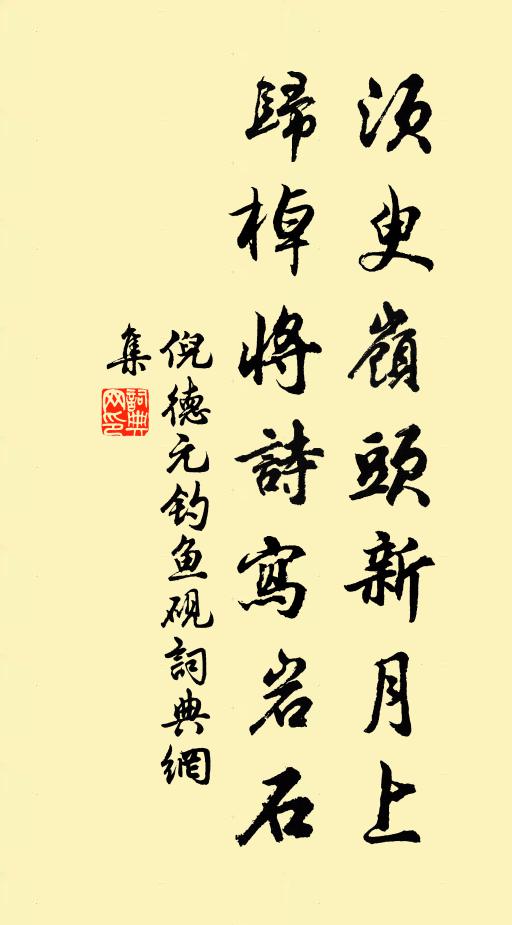 須臾嶺頭新月上
歸棹將詩寫岩石
倪德元钓鱼砚詞典網
集
詞典
网印